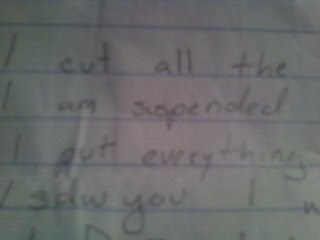 I cut all the
I am suspended
I put everything
I saw you I